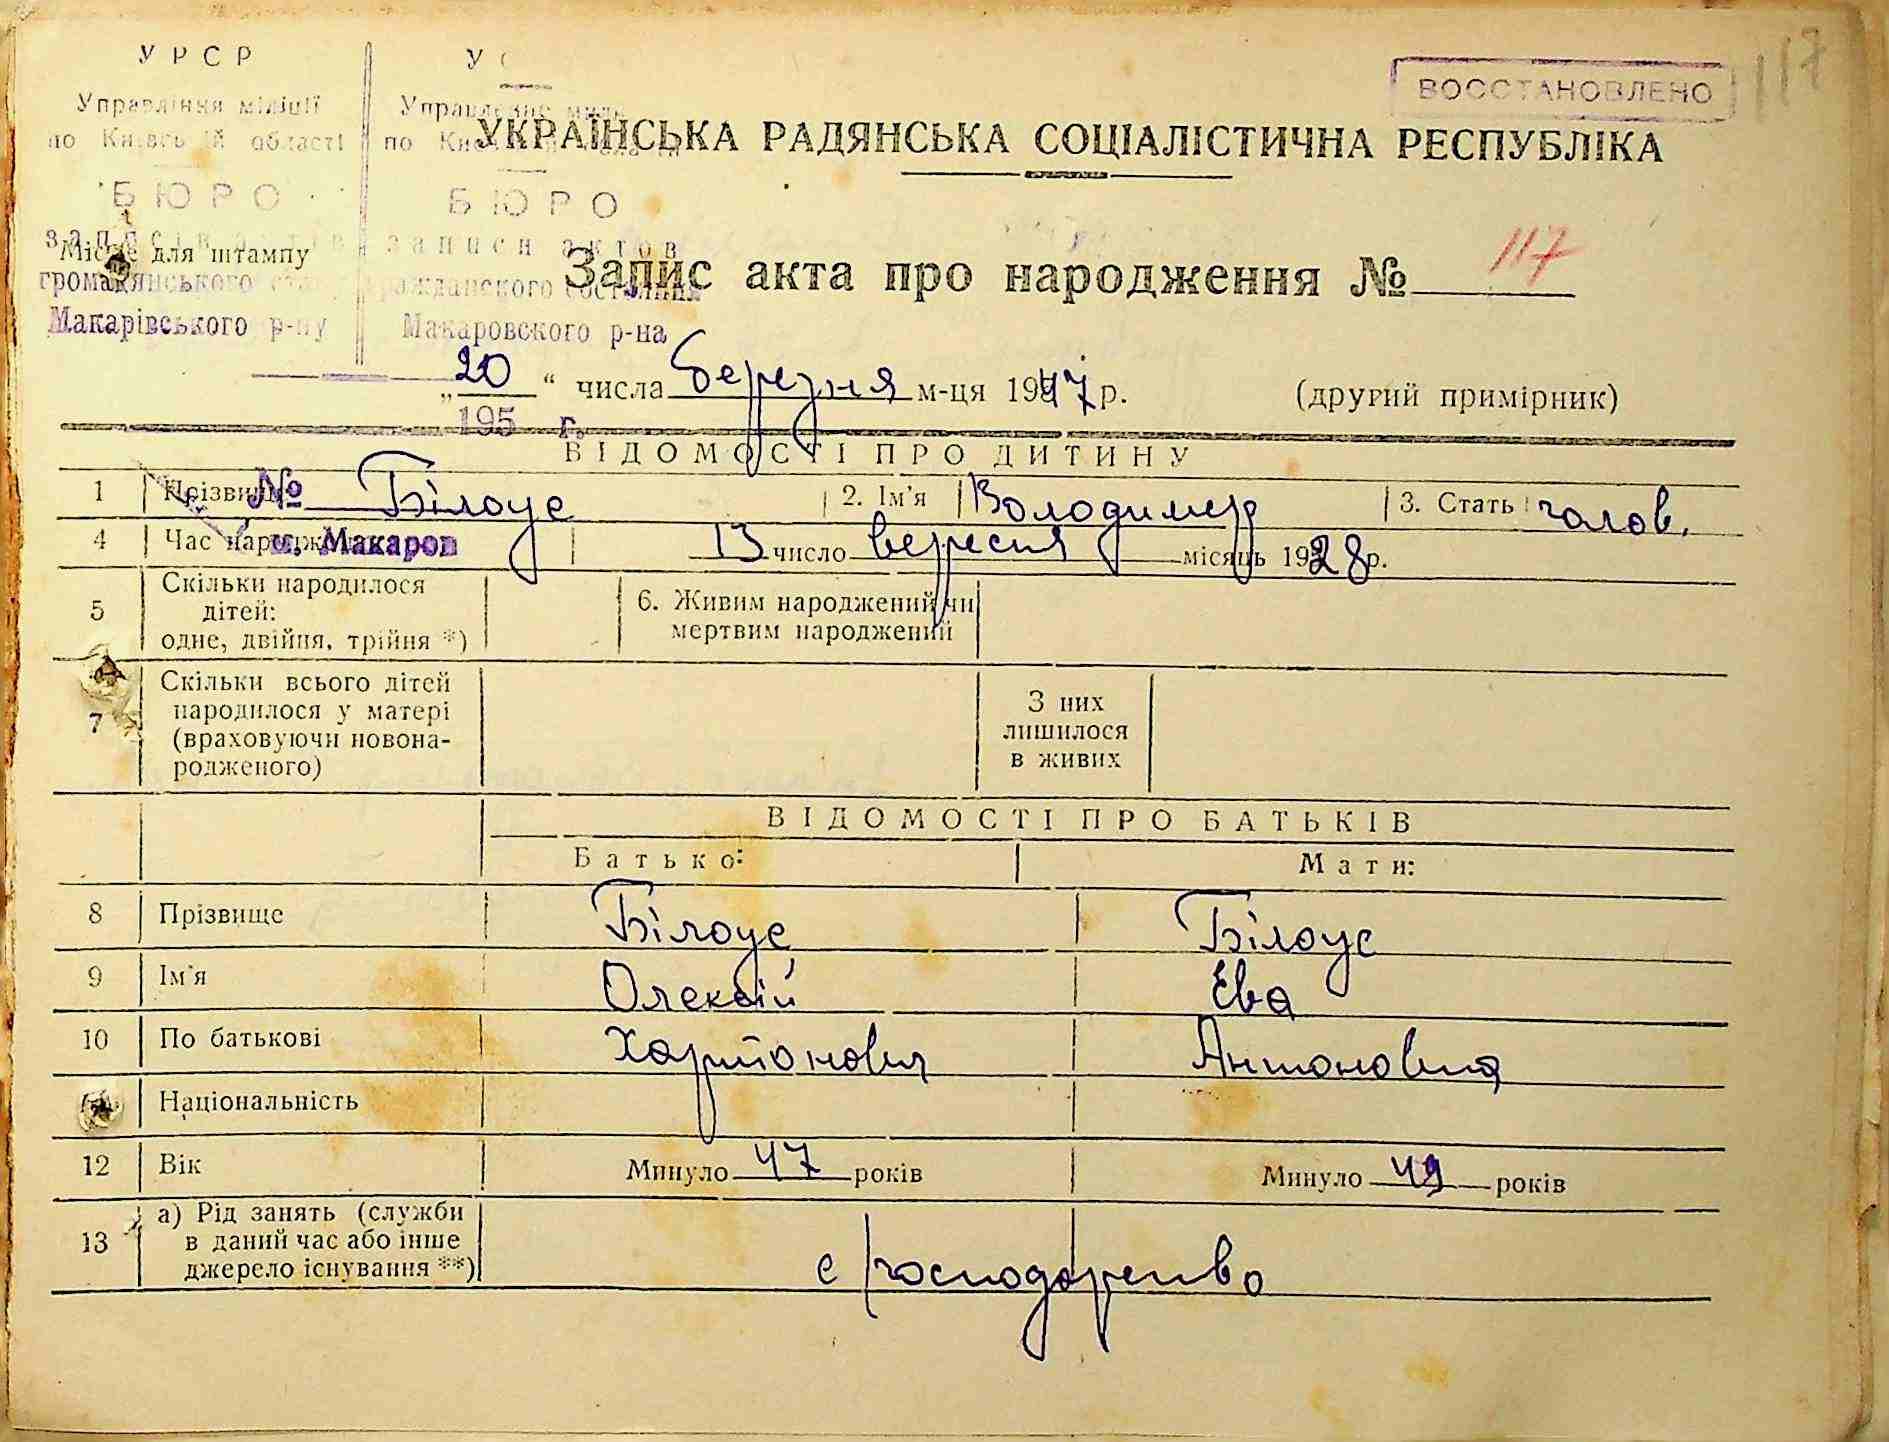 117
У Р С Р
У
ВОССТАНОВЛЕНО
Управління міліції
по Київській області
по
УКРАЇНСЬКА РАДЯНСЬКА СОЦІАЛІСТИЧНА РЕСПУБЛІКА
БЮРО
БЮРО
записів актів
записи актов
Місце для штампу
громадянського
гражданского состояния
Запис акта про народження № 117
Макарівського р-ну
Макаровского р-на
„20“ числа березня м-ця 1947 р. (другий примірник)
195 г.
ВІДОМОСТІ ПРО ДИТИНУ
1 Прізвище № Білоус 2. Ім'я Володимер 3. Стать чолов.
4 Час народження м. Макаров 13 число вересня місяць 1928 р.
5 Скільки народилося дітей: одне, двійня, трійня *) 6. Живим народжений чи мертвим народжений
7 Скільки всього дітей народилося у матері (враховуючи новонародженого) З них лишилося в живих
ВІДОМОСТІ ПРО БАТЬКІВ
Батько: Мати:
8 Прізвище Білоус Білоус
9 Ім'я Олексій Ева
10 По батькові Харитонович Антоновна
Національність
12 Вік Минуло 47 років Минуло 49 років
13 а) Рід занять (служби в даний час або інше джерело існування **) с/господарство